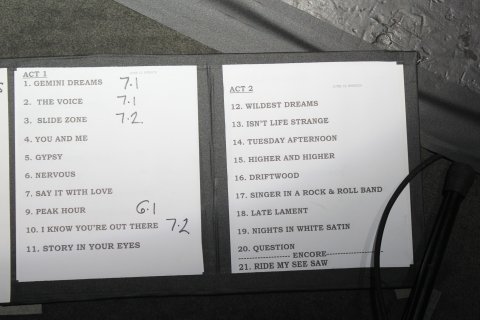 ACT 1
1. GEMINI DREAMS 7.1
2. THE VOICE 7.1
3. SLIDE ZONE 7.2
4. YOU AND ME
5. GYPSY
6. NERVOUS
7. SAY IT WITH LOVE
9. PEAK HOUR 6.1
10. I KNOW YOU'RE OUT THERE 7.2
11. STORY IN YOUR EYES
ACT 2
12. WILDEST DREAMS
13. ISN'T LIFE STRANGE
14. TUESDAY AFTERNOON
15. HIGHER AND HIGHER
16. DRIFTWOOD
17. SINGER IN A ROCK & ROLL BAND
18. LATE LAMENT
19. NIGHTS IN WHITE SATIN
20. QUESTION
---------------- ENCORE-----------------
21. RIDE MY SEE SAW